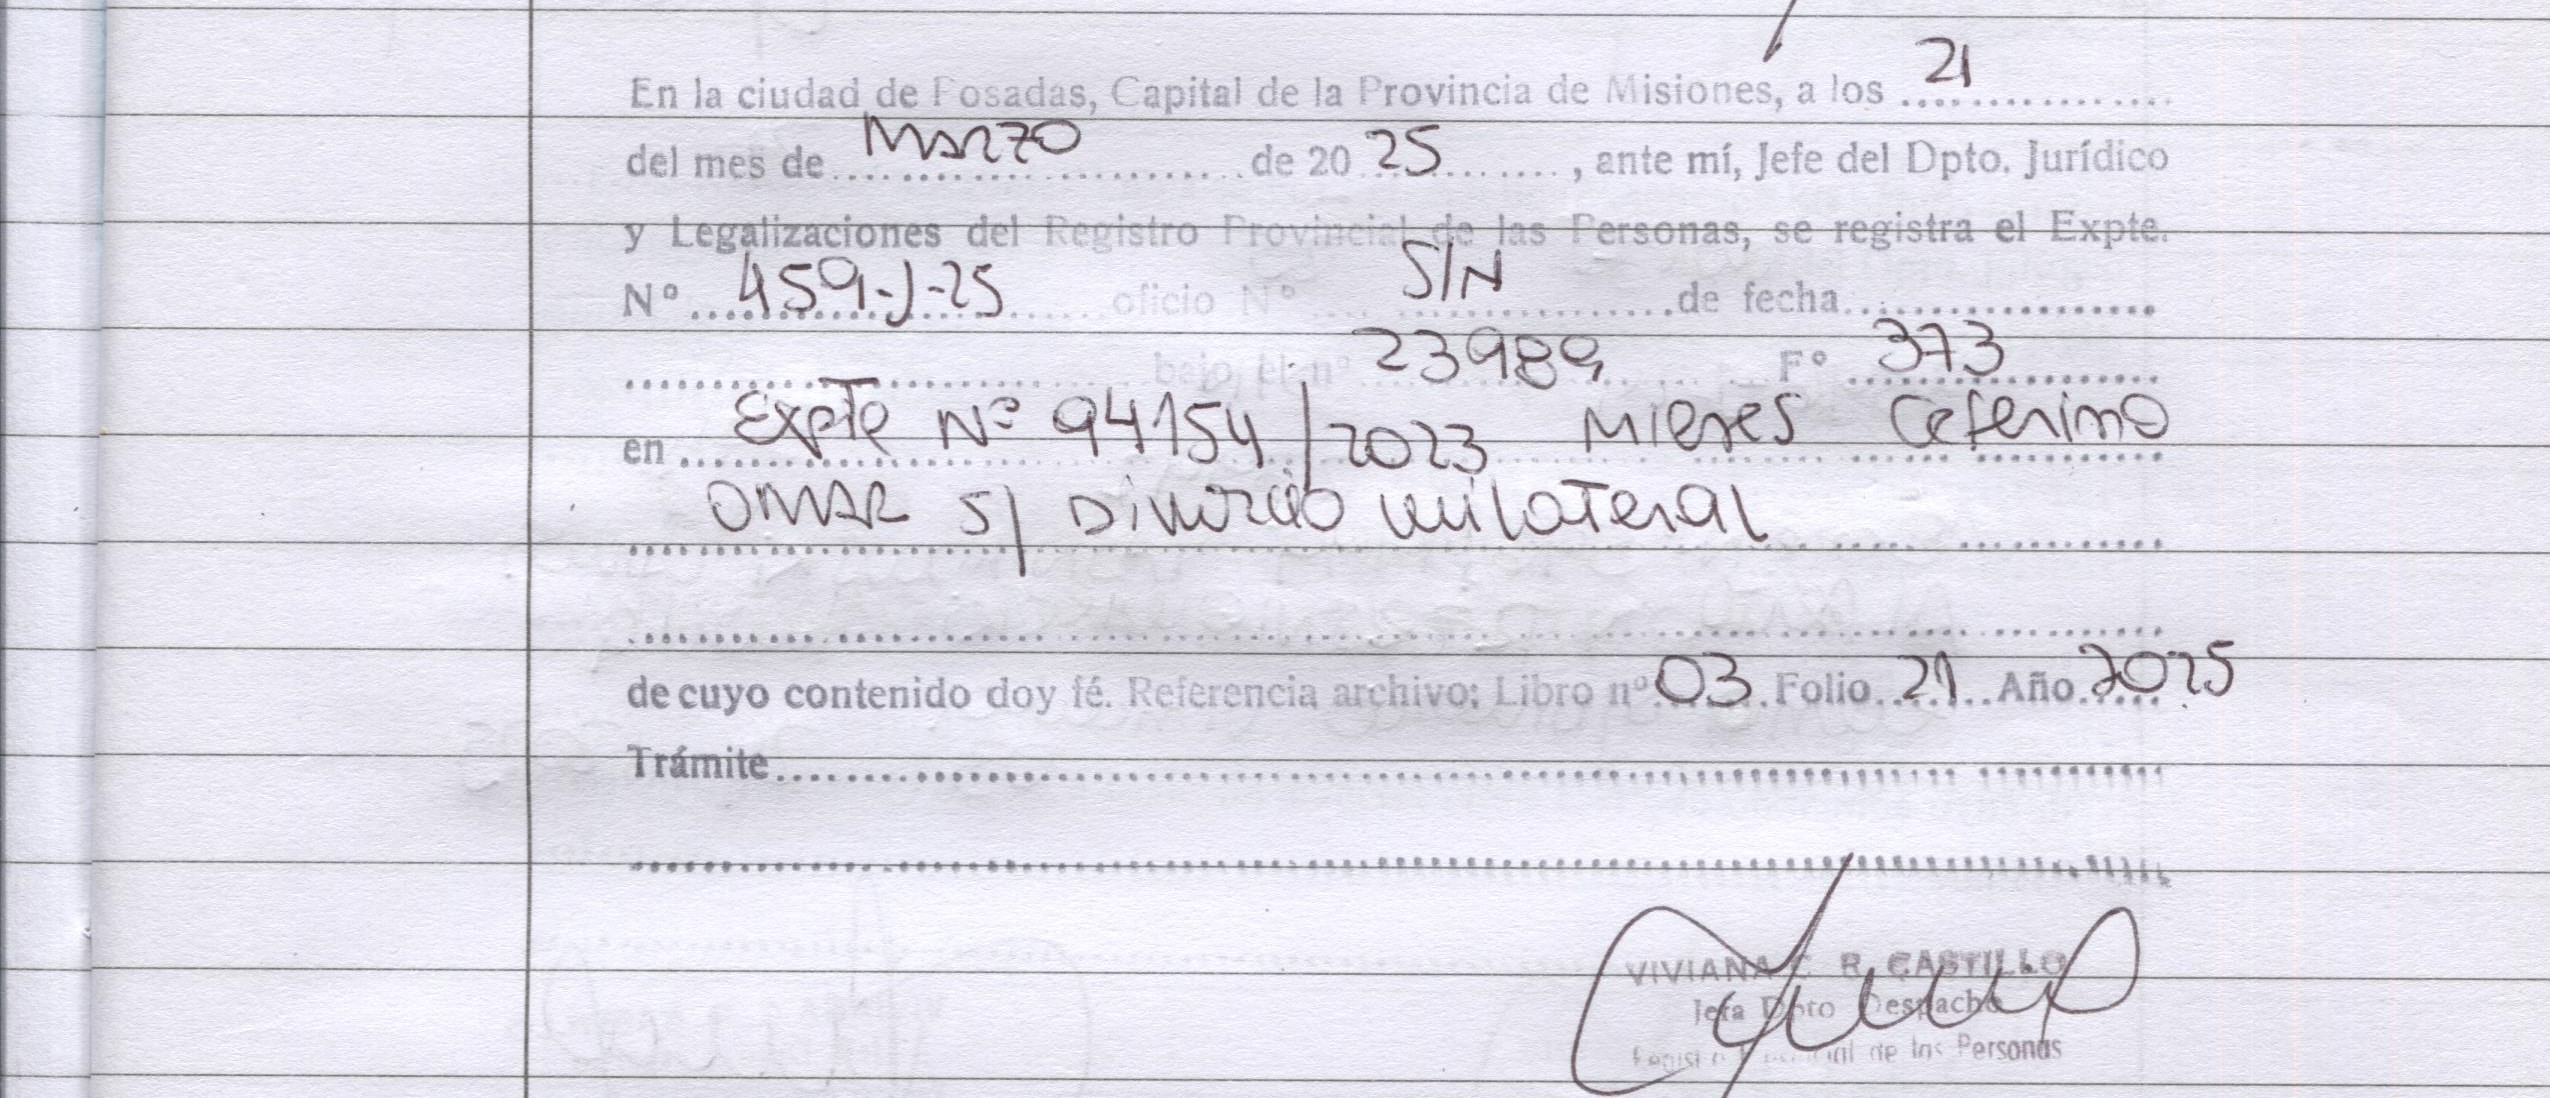 En la ciudad de Posadas, Capital de la Provincia de Misiones, a los 21
del mes de Marzo de 20 25, ante mí, Jefe del Dpto. Jurídico
y Legalizaciones del Registro Provincial de las Personas, se registra el Expte.
Nº 459-J-25 oficio Nº S/N de fecha
bajo el nº 23989 Fº 373
en Expte Nº 94154/2023 Mieres Ceferino
OMAR S/ Divorcio unilateral
de cuyo contenido doy fé. Referencia archivo: Libro nº 03 Folio 21 Año 2025
Trámite
VIVIANA C. R. CASTILLO
Jefa Dpto Despacho
Registro Provincial de las Personas